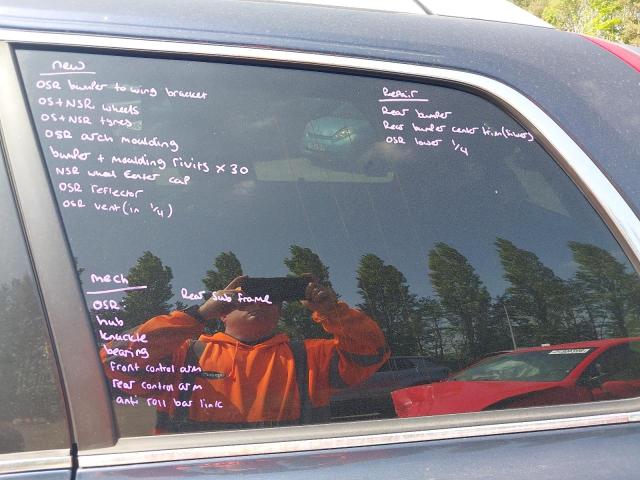 new
OSR bumper to wing bracket
OS+NSR wheels
OS+NSR tyres
OSR arch moulding
bumper + moulding rivits x 30
NSR wheel center cap
OSR reflector
OSR vent (in 1/4)
Repair
Rear bumper
Rear bumper center trim (lower)
OSR lower 1/4
mech
OSR:
hub
knuckle
bearing
front control arm
rear control arm
anti roll bar link
Rear sub frame